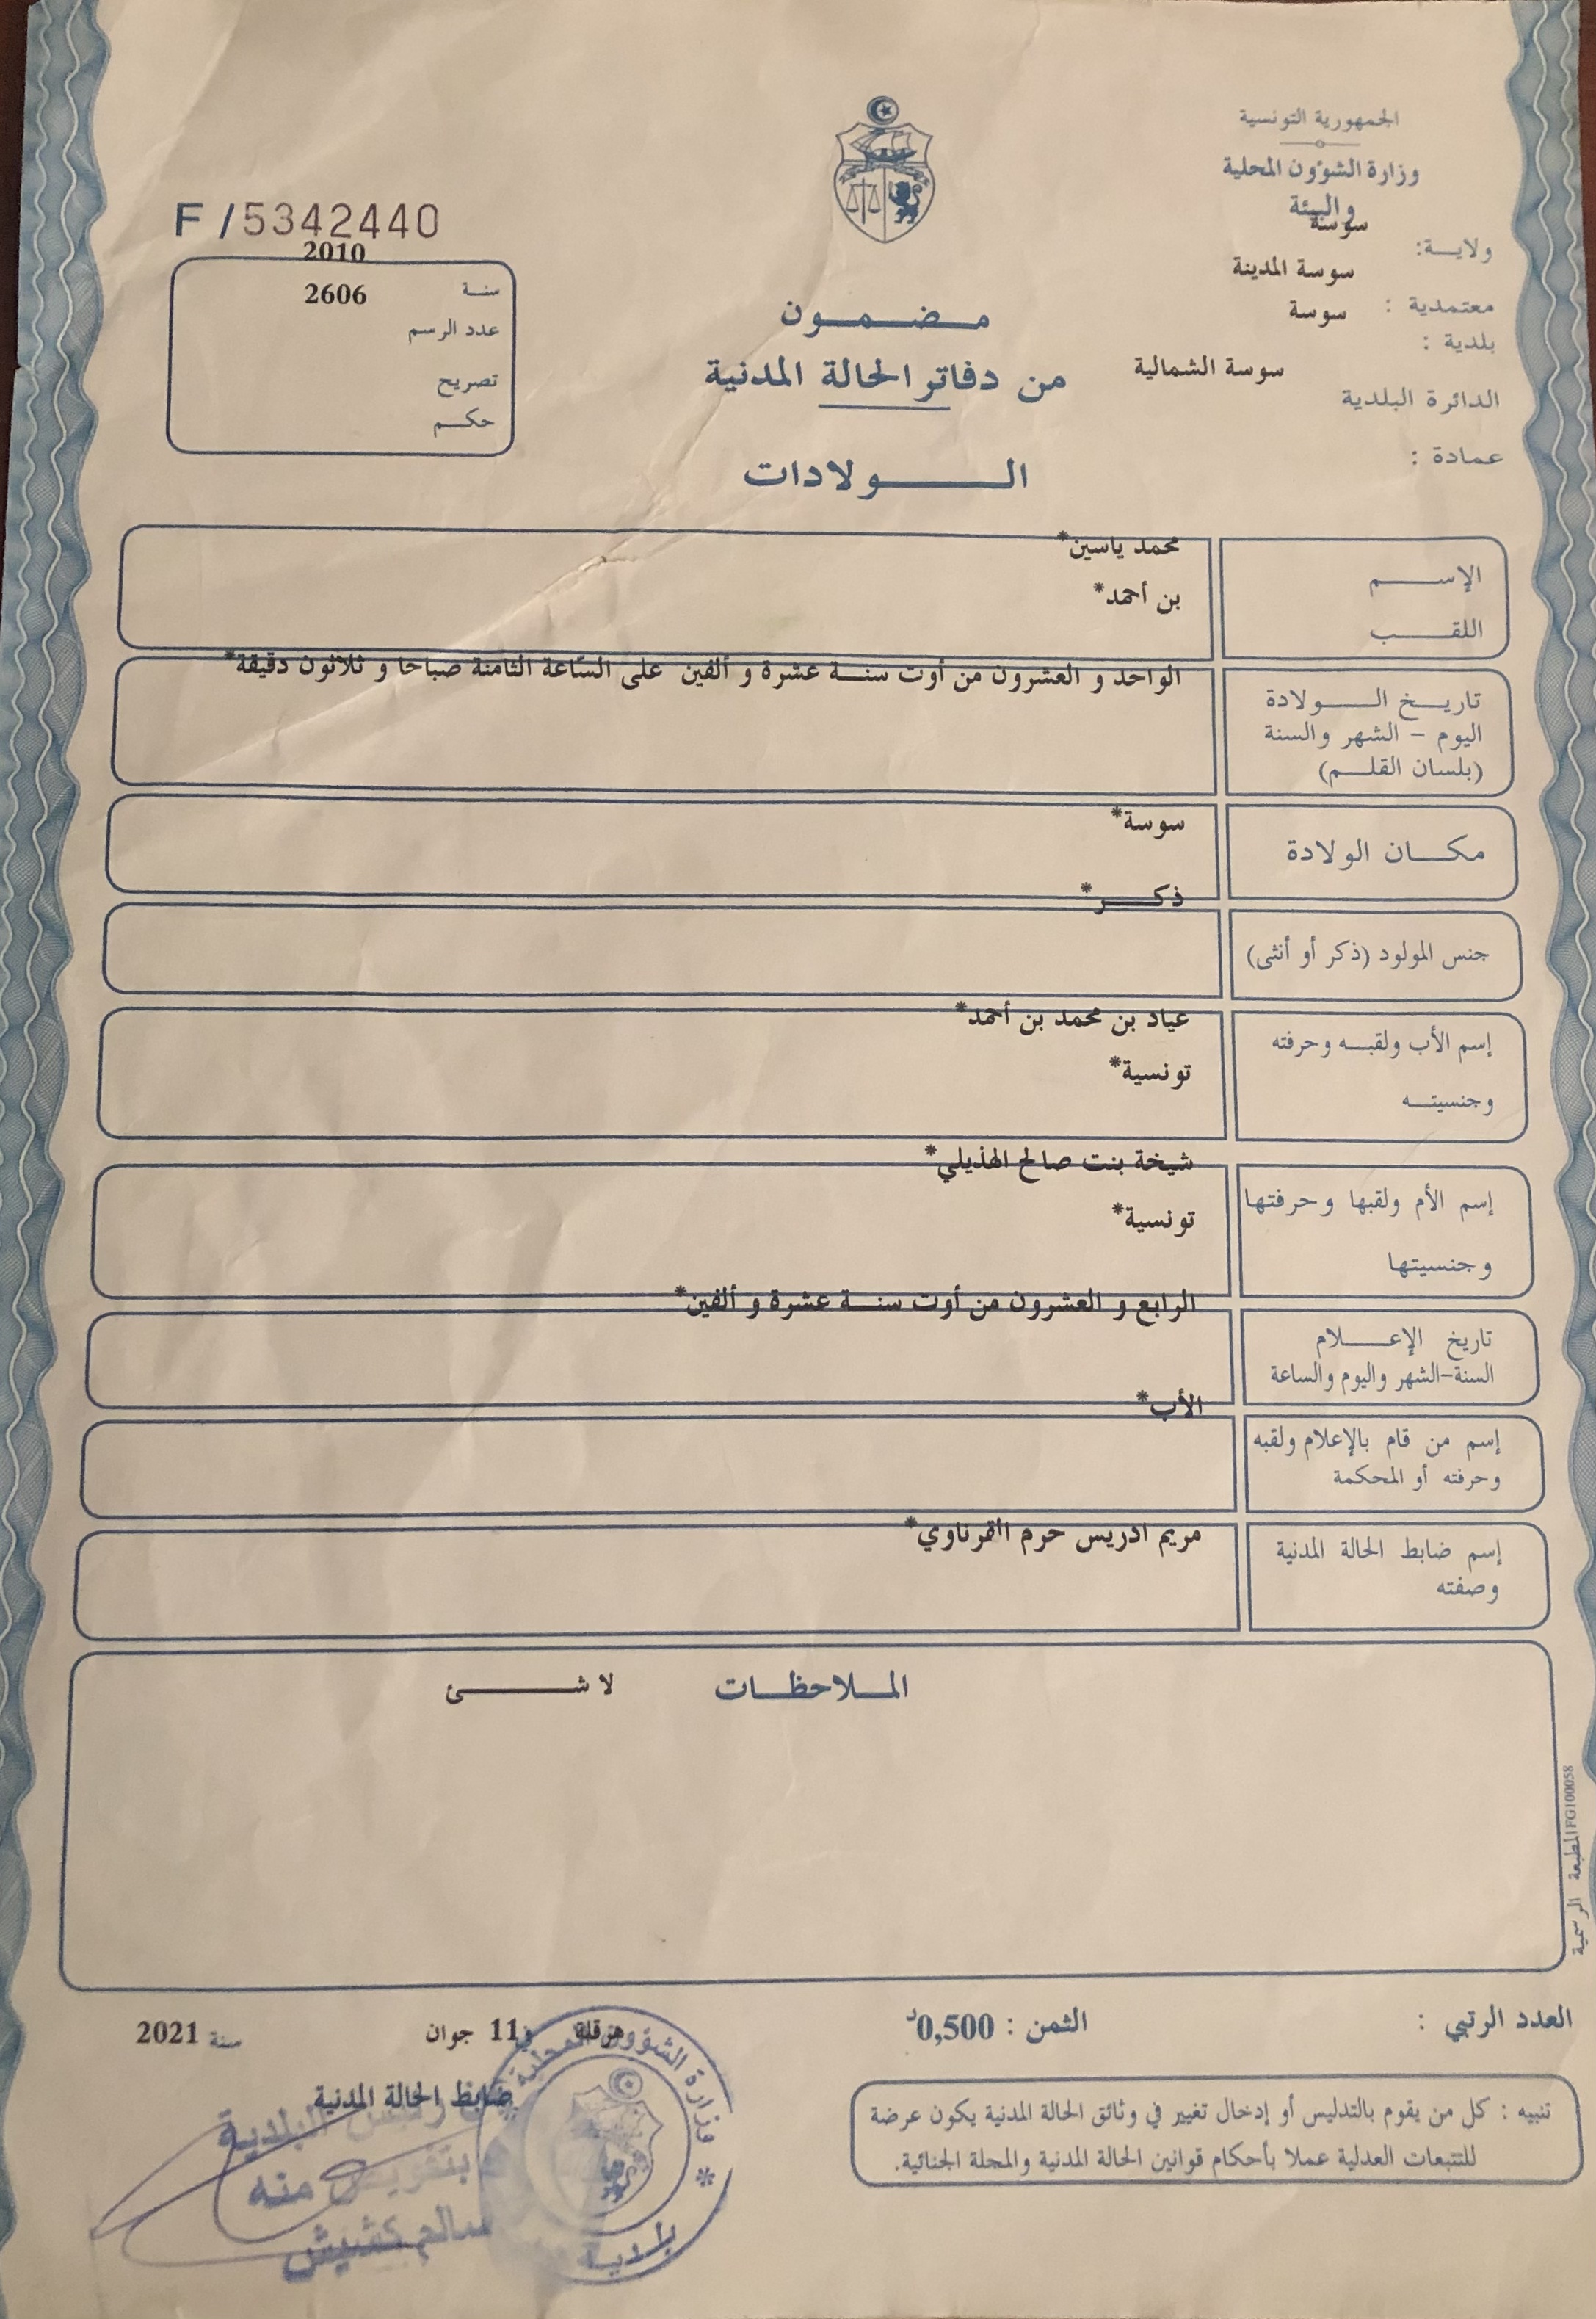 الجمهورية التونسية
وزارة الشؤون المحلية
والبيئة
ولايـــة: سوسة
معتمدية : سوسة المدينة
بلدية : سوسة
الدائرة البلدية سوسة الشمالية
عمادة :
F /5342440
سنة 2010
عدد الرسم 2606
تصريح
حكم
مـضـمـون
من دفاتر الحالة المدنية
الـــولادات
الإســـم محمد ياسين*
اللقـــب بن أحمد*
تاريـخ الـــولادة الواحد و العشرون من أوت سنـــة عشرة و ألفين على السّاعة الثامنة صباحا و ثلاثون دقيقة*
اليوم - الشهر والسنة
(بلسان القلـم)
مكـان الولادة سوسة*
جنس المولود (ذكر أو أنثى) ذكـــر*
إسم الأب ولقبـه وحرفته عياد بن محمد بن أحمد*
وجنسيتـه تونسية*
إسم الأم ولقبها وحرفتها شيخة بنت صالح الهذيلي*
وجنسيتها تونسية*
تاريخ الإعـــلام الرابع و العشرون من أوت سنـــة عشرة و ألفين*
السنة-الشهر واليوم والساعة
إسم من قام بالإعلام ولقبه الأب*
وحرفته أو المحكمة
إسم ضابط الحالة المدنية مريم ادريس حرم القرناوي*
وصفته
المـلاحظـات لا شـــئ
المطبعة الرسمية FG100058
العدد الرتبي :
الثمن : 0,500د
هرقلة في 11 جوان سنة 2021
ضابط الحالة المدنية
رئيس البلدية
بتفويض منه
سالم كشيش
وزارة الشؤون المحلية
بلدية
تنبيه : كل من يقوم بالتدليس أو إدخال تغيير في وثائق الحالة المدنية يكون عرضة
للتتبعات العدلية عملا بأحكام قوانين الحالة المدنية والمجلة الجنائية.